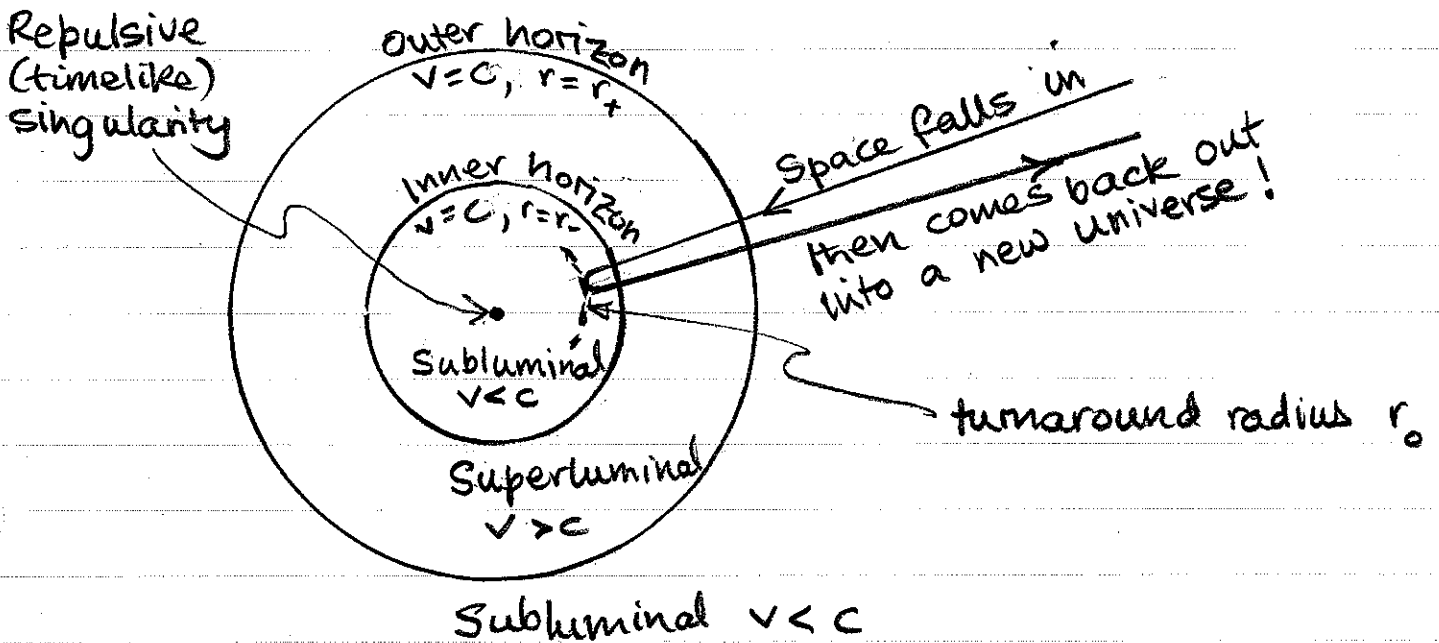 Repulsive
(timelike)
singularity
Outer horizon
v = c, r = r₊
Inner horizon
v = c, r = r₋
Space falls in
then comes back out
into a new universe!
Subluminal
v < c
turnaround radius r₀
Superluminal
v > c
Subluminal v < c